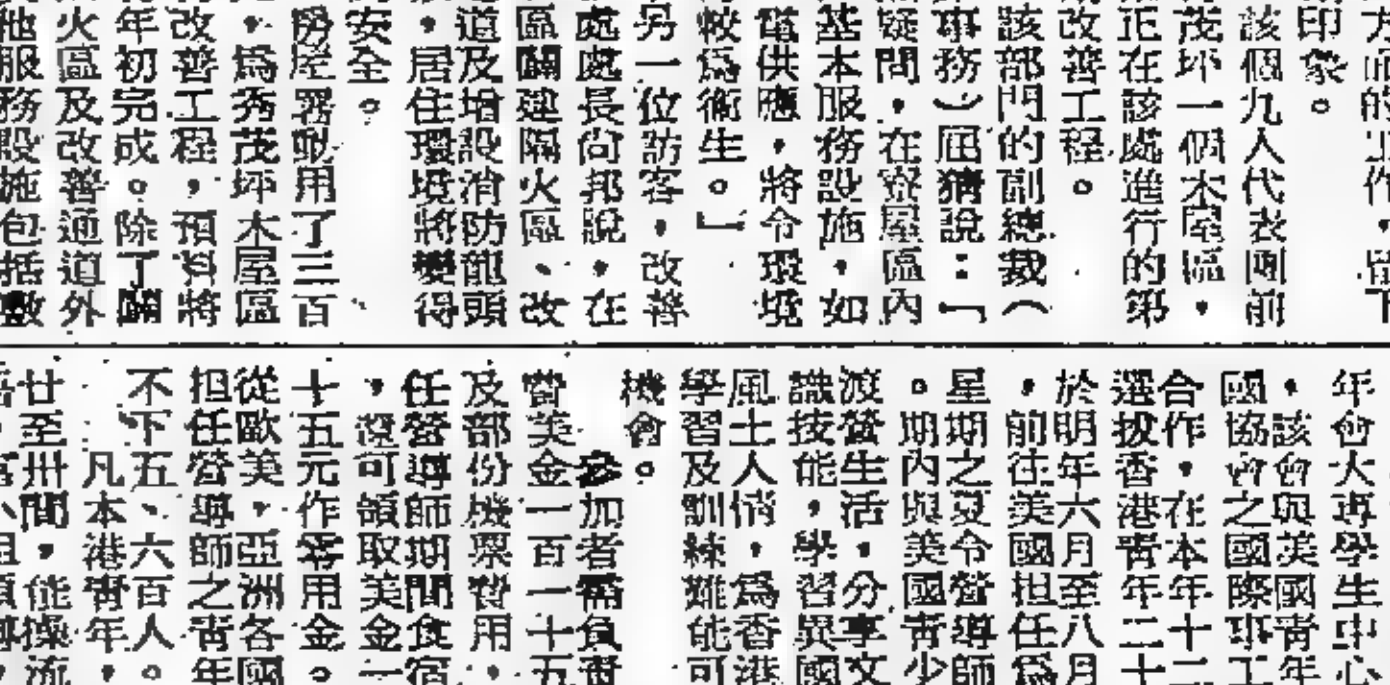 方面的工作，留下
印象。
該個九人代表團前
茂坪一個木屋區，
正在該處進行的第
期改善工程。
該部門的副總裁（
事務）屈猜說：「
疑問，在寮屋區內
基本服務設施，如
電供應，將令環境
較為衛生。」
另一位訪客，改善
處處長尚邦說，在
區闢建隔火區、改
道及增設消防龍頭
，居住環境將變得
安全。
房屋署動用了三百
，為秀茂坪木屋區
改善工程，預料將
年初完成。除了闢
火區及改善通道外
他服務設施包括敷
年會大專學生中心
，該會與美國青年
國協會之國際事工
合作，在本年十二
選拔香港青年二十
於明年六月至八月
，前往美國担任為
星期之夏令營導師
。期內與美國青少
渡營生活，分享文
識技能，學習異國
風土人情，為香港
學習及訓練難能可
機會。
參加者需負責
費美金一百一十五
及部份機票費用，
任營導師期間食宿
，還可領取美金一
十五元作零用金。
從歐美，亞洲各國
担任營導師之青年
不下五、六百人。
凡本港青年，
廿至卅間，能操流